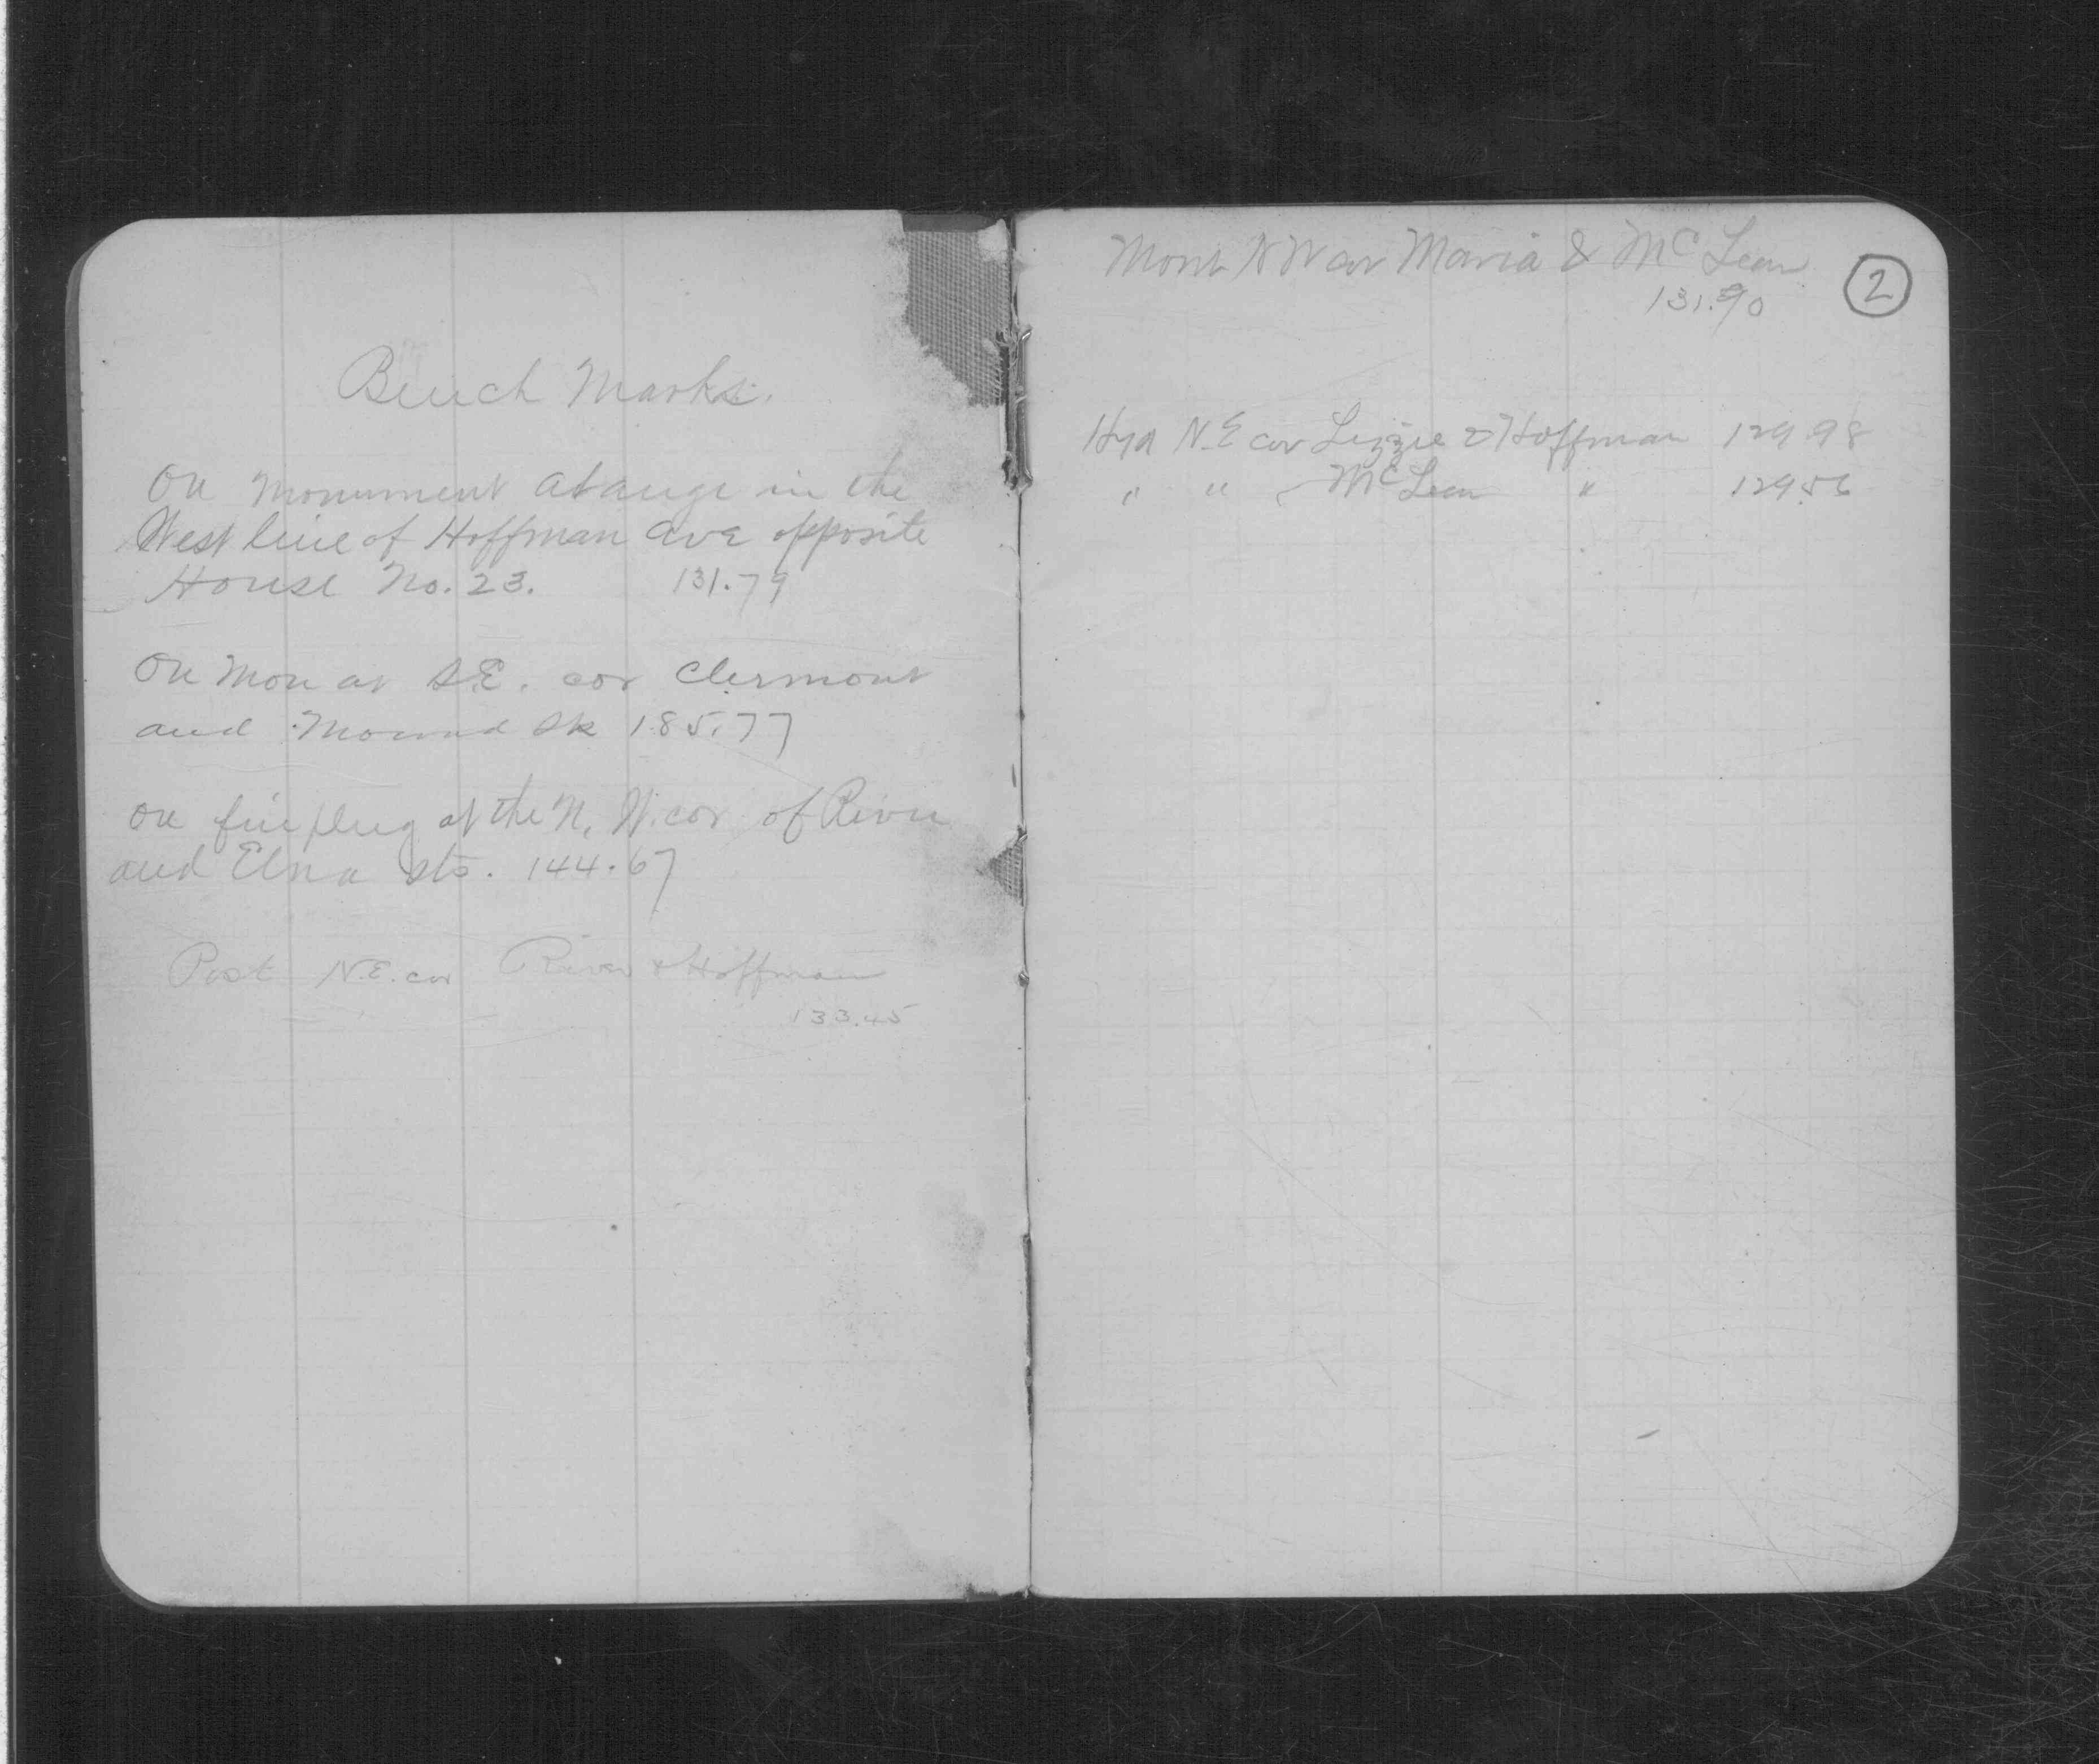 Bench Marks.
On Monument at angle in the
West line of Hoffman Ave opposite
House No. 23. 131.79
On Mon at S.E. cor Clermont
and Mound Sts 185.77
On fire plug at the N. W. cor of River
and Elna Sts. 144.67
Post N.E. cor River & Hoffman
133.45
Mont N W cor Maria & McLean
131.90
2
Hyd N.E cor Lizzie & Hoffman 129.98
" " McLean " 129.56